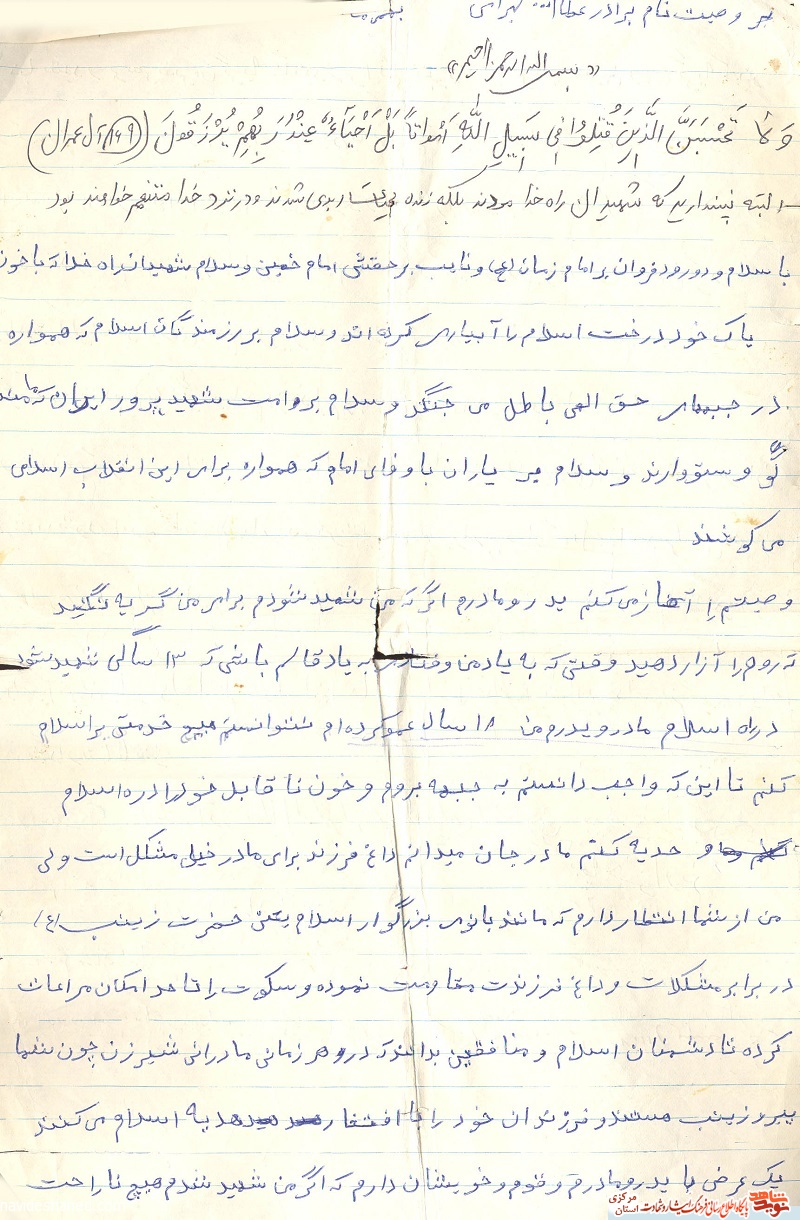 وصیت نام برادر عطاا...
« بسم الله الرحمن الرحیم »
وَلا تَحْسَبَنَّ الَّذینَ قُتِلُوا فی سَبیلِ اللَّهِ اَمْواتاً بَلْ اَحْیآءٌ عِنْدَ رَبِّهِمْ یُرْزَقُونَ (۱۶۹ آل عمران)
البته نپندارید که شهیدان راه خدا مردند بلکه زنده ابدی شدند و در نزد خدا متنعم خواهند بود
با سلام و درود فروان بر امام زمان (عج) و نایب بر حقش امام خمین و سلام شهیدان راه خدا که با خون
پاک خود درخت اسلام را آبیاری کرده اند و سلام بر رزمندگان اسلام که همواره
در جبهه‌های حق الهی باطل می جنگند و سلام بر امت شهید پرور ایران که مانند
کوه و ستوارند و سلام بر یاران با وفای امام که همواره برای این انقلاب اسلامی
می کوشند
وصیتم را آغاز می کنم پدر و مادرم اگر که من شهید شودم برای من گریه نکنید
که روهم را آزار دهید وقتی که به یاد من به یاد قاسم باشی که ۱۳ سالگی شهید شود
در راه اسلام مادر و پدرم من ۱۸ سال عمو کرده ام نتوانستم هیچ خدمتی بر اسلام
کنم تا این که واجب دانستم به جبهه بروم و خون نا قابل خود را در ه اسلام
و حدیه کنم مادر جان میدانم داغ فرزند برای مادر خیلی مشکل است ولی
من از شما انتظار دارم که مانند بانوی بزرگوار اسلام یعنی حضرت زینب (ع)
در برابر مشکلات و داغ فرزندت مقاومت نموده و سکوت را تا حد امکان مراعات
کرده تا دشمنان اسلام و منافقین بدانند که در هر زمانی مادرانی شیر زن چون شما
پیرو زینب هستند و فرزندان خود را با افتخار هدیه اسلام می کنند
یک عرض با پدر و مادرم و قوم و خویشان دارم که اگر من شهید شدم هیچ ناراحت
نوید شاهد
پایگاه اطلاع رسانی فرهنگ ایثار و شهادت استان مرکزی